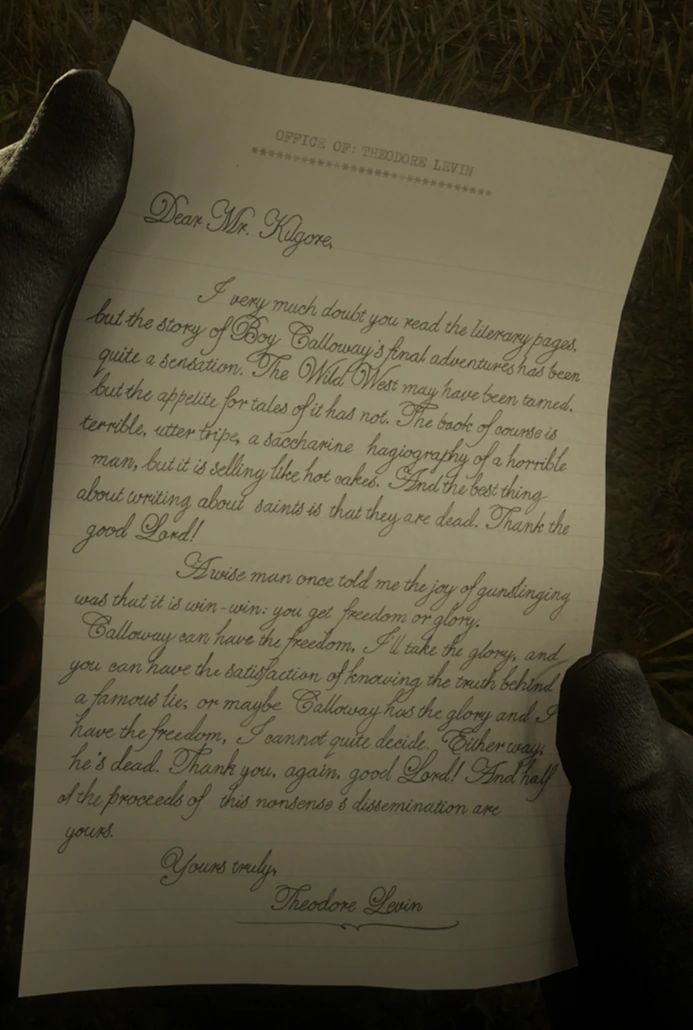 OFFICE OF: THEODORE LEVIN
******************************
Dear Mr. Kilgore,
I very much doubt you read the literary pages,
but the story of Boy Calloway's final adventures has been
quite a sensation. The Wild West may have been tamed,
but the appetite for tales of it has not. The book of course is
terrible, utter tripe, a saccharine hagiography of a horrible
man, but it is selling like hot cakes. And the best thing
about writing about saints is that they are dead. Thank the
good Lord!
A wise man once told me the joy of gunslinging
was that it is win-win: you get freedom or glory.
Calloway can have the freedom, I'll take the glory, and
you can have the satisfaction of knowing the truth behind
a famous lie, or maybe Calloway has the glory and I
have the freedom, I cannot quite decide. Either way,
he's dead. Thank you, again, good Lord! And half
of the proceeds of this nonsense's dissemination are
yours.
Yours truly,
Theodore Levin